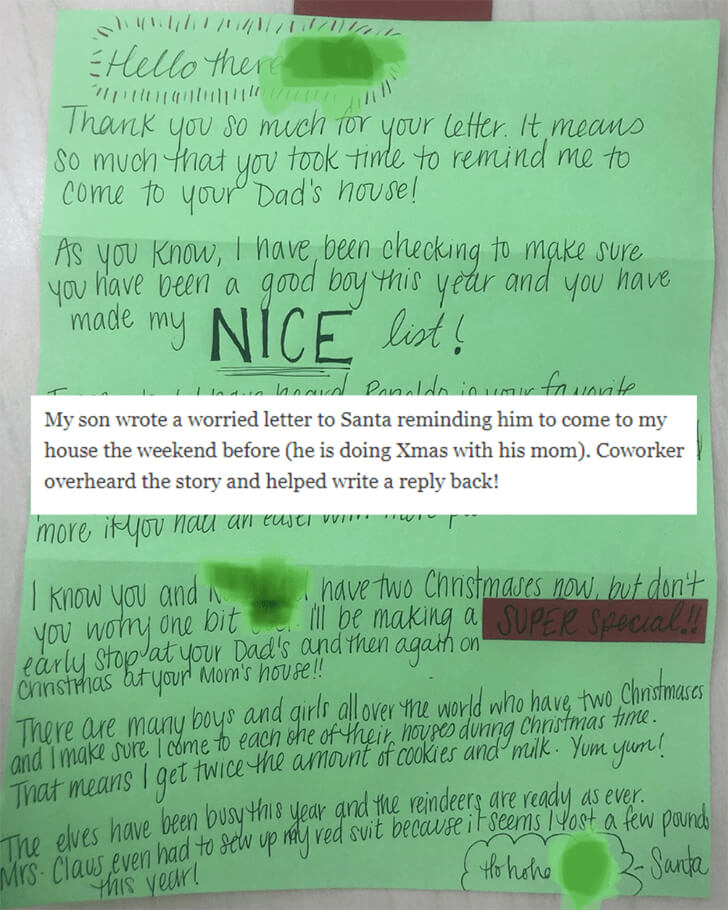 Hello there
Thank you so much for your letter. It means
so much that you took time to remind me to
come to your Dad's house!
As you know, I have been checking to make sure
you have been a good boy this year and you have
made my NICE list!
I have heard Ronaldo is your favorite
My son wrote a worried letter to Santa reminding him to come to my
house the weekend before (he is doing Xmas with his mom). Coworker
overheard the story and helped write a reply back!
more if you had an easel with more
I know you and have two Christmases now, but don't
you worry one bit I'll be making a SUPER Special!!
early stop at your Dad's and then again on
Christmas at your Mom's house!!
There are many boys and girls all over the world who have two Christmases
and I make sure I come to each one of their houses during Christmas time.
That means I get twice the amount of cookies and milk. Yum yum!
The elves have been busy this year and the reindeers are ready as ever.
Mrs. Claus even had to sew up my red suit because it seems I lost a few pounds
this year!
Ho ho ho
- Santa